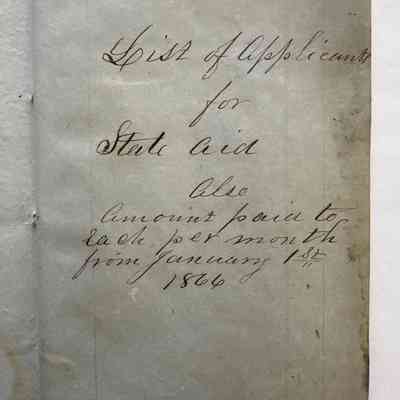 List of Applicants
for
State Aid
Also
Amount paid to
Each per month
from January 1st
1866